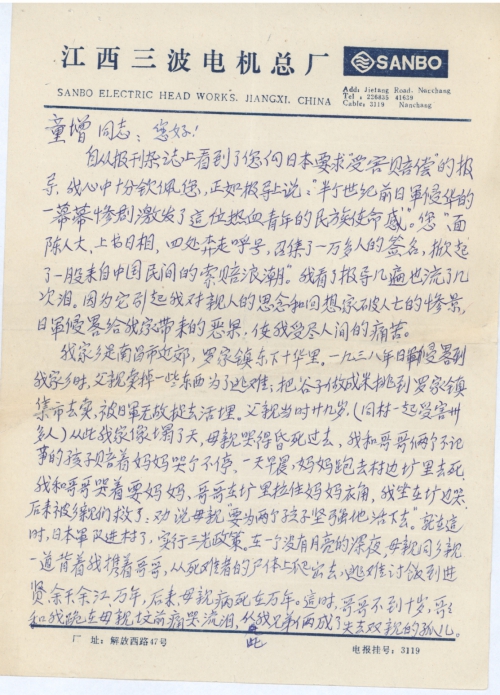 江西三波电机总厂
SANBO
SANBO ELECTRIC HEAD WORKS. JIANGXI. CHINA
Add: Jiefang Road. Nanchang
Tel : 226835 41639
Cable: 3119 Nanchang
童增同志：您好！
自从报刊杂志上看到了您向日本要求“受害赔偿”的报
导，我心中十分钦佩您，正如报导上说：“半个世纪前日军侵华的
一幕幕惨剧激发了这位热血青年的民族使命感”。您“面
陈人大、上书日相，四处奔走呼号，召集了一万多人的签名，掀起
了一股来自中国民间的索赔浪潮”。我看了报导几遍也流了几
次泪。因为它引起我对亲人的思念和回想家破人亡的惨景，
日军侵略给我家带来的恶果，使我受尽人间的痛苦。
我家乡是南昌市北郊，罗家镇东下十华里。一九三八年日軍侵略到
我家乡时，父亲卖掉一些东西为了逃难；把谷子做成米挑到罗家镇
集市去卖，被日军无故捉去活埋，父亲当时廿九岁。（同村一起受害卅
多人）从此我家像塌了天，母亲哭得昏死过去，我和哥哥俩个不记
事的孩子陪着妈妈哭个不停，一天早晨，妈妈跑去村边圹里去死
我和哥哥哭着要妈妈，哥哥在圹里拉住妈妈衣角，我坐在圹边哭
后来被乡亲们救了；劝说母亲“要为两个孩子坚强地活下去”。就在这
时，日本军队进村了，实行三光政策。在一个没有月亮的深夜，母亲同乡亲
一道背着我携着哥哥，从死难者的尸体上爬出去，逃难讨饭到进
贤、余干、余江、万年，后来，母亲病死在万年。這时，哥哥不到十岁，哥哥
和我跪在母亲坟前痛哭流泪，从此我兄弟俩成了失去双亲的孤儿。
厂 址：解放西路47号
电报挂号：3119